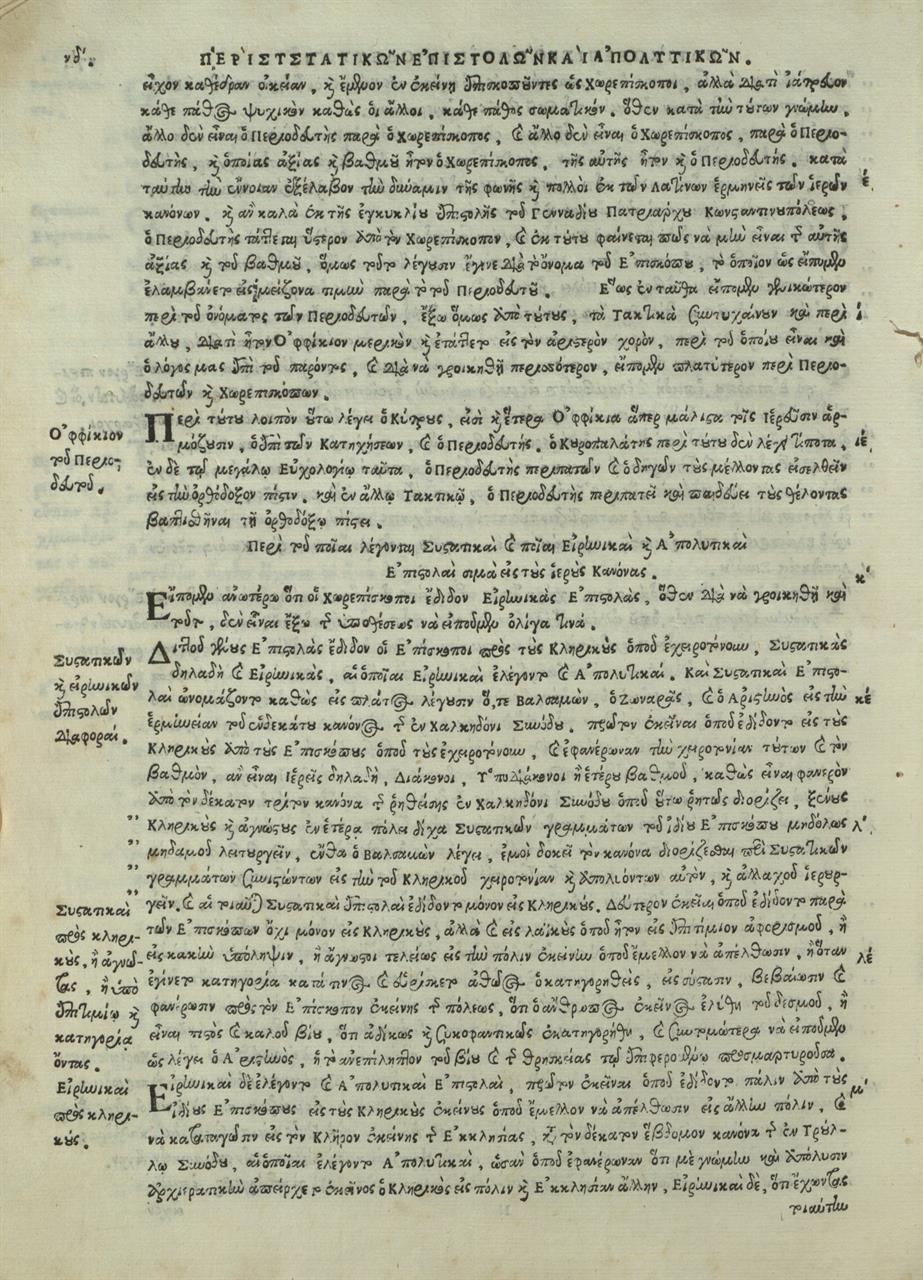 νδ´.
ΠΕΡΙ ΣΥΣΤΑΤΙΚΩΝ ΕΠΙΣΤΟΛΩΝ ΚΑΙ ΑΠΟΛΥΤΙΚΩΝ.
εἶχον καθέδραν οἰκείαν, καὶ ἔμενον ἐν ἐκείνῃ ἐπισκοποῦντες ὡς Χωρεπίσκοποι, ἀλλὰ διατὶ ἰάτρευον
κάθε πάθος ψυχικὸν καθὼς οἱ ἄλλοι, κάθε πάθος σωματικόν. ὅθεν κατὰ τὴν τούτων γνώμην,
ἄλλο δὲν εἶναι ὁ Περιοδευτὴς παρὰ ὁ Χωρεπίσκοπος, καὶ ἄλλο δὲν εἶναι ὁ Χωρεπίσκοπος, παρὰ ὁ Περιο-
δευτὴς, καὶ ὁποίας ἀξίας καὶ βαθμοῦ ἦτον ὁ Χωρεπίσκοπος, τῆς αὐτῆς ἦτον καὶ ὁ Περιοδευτής. κατὰ
ταύτην τὴν ἔννοιαν ἐξέλαβον τὴν δύναμιν τῆς φωνῆς καὶ πολλοὶ ἐκ τῶν Λατίνων ἑρμηνεῖς τῶν ἱερῶν
έ
κανόνων. καὶ ἂν καλὰ ἐκ τῆς ἐγκυκλίου ἐπιστολῆς τοῦ Γενναδίου Πατριάρχου Κωνσταντινουπόλεως,
ὁ Περιοδευτὴς τάττεται ὕστερον ἀπὸ τὸν Χωρεπίσκοπον, καὶ ἐκ τούτου φαίνεται πῶς νὰ μὴν εἶναι τῆς αὐτῆς
ἀξίας καὶ τοῦ βαθμοῦ, ὅμως τοῦτο λέγουσιν ἔγινε διὰ τὸ ὄνομα τοῦ Ἐπισκόπου, τὸ ὁποῖον ὡς εἴπομεν
ἐλαμβάνετο εἰς μείζονα τιμὴν παρὰ τὸ τοῦ Περιοδευτοῦ. Ἕως ἐνταῦθα εἴπομεν γενικώτερον
περὶ τοῦ ὀνόματος τῶν Περιοδευτῶν, ἔξω ὅμως ἀπὸ τούτους, τὰ Τακτικὰ συντυχαίνουν καὶ περὶ
ί
ἄλλου, διατὶ ἦτον Ὀφφίκιον μερικὸν καὶ ἐτάττετο εἰς τὸν ἀριστερὸν χορὸν, περὶ τοῦ ὁποίου εἶναι καὶ
ὁ λόγος μας ἐπὶ τοῦ παρόντος, καὶ διὰ νὰ γροικηθῇ περισσότερον, εἴπομεν πλατύτερον περὶ Περιο-
δευτῶν καὶ Χωρεπισκόπων.
Ὀφφίκιον
τοῦ Περιο-
δευτοῦ.
Περὶ τούτου λοιπὸν οὕτω λέγει ὁ Κίτρους, εἰσὶ καὶ ἕτερα Ὀφφίκια ἅπερ μάλιστα τοῖς Ἱερεῦσιν ἁρ-
μόζουσιν, ὁ ἐπὶ τῶν Κατηχήσεων, καὶ ὁ Περιοδευτής. ὁ Κυροπαλάτης περὶ τούτου δὲν λέγει τίποτα,
ιέ
ἐν δὲ τῷ μεγάλῳ Εὐχολογίῳ ταῦτα, ὁ Περιοδευτὴς περιπατῶν καὶ ὁδηγῶν τοὺς μέλλοντας εἰσελθεῖν
εἰς τὴν ὀρθόδοξον πίστιν. καὶ ἐν ἄλλῳ Τακτικῷ, ὁ Περιοδευτὴς περιπατεῖ καὶ παιδεύει τοὺς θέλοντας
βαπτισθῆναι τῇ ὀρθοδόξῳ πίστει.
Περὶ τοῦ ποῖαι λέγονται Συστατικαὶ καὶ ποῖαι Εἰρηνικαὶ καὶ Ἀπολυτικαὶ
Ἐπιστολαὶ σιμὰ εἰς τοὺς ἱεροὺς Κανόνας.
κ´
Εἴπομεν ἀνωτέρω ὅτι οἱ Χωρεπίσκοποι ἔδιδον Εἰρηνικὰς Ἐπιστολὰς, ὅθεν διὰ νὰ γροικηθῇ καὶ
τοῦτο, δὲν εἶναι ἔξω τῆς ὑποθέσεως νὰ εἰποῦμεν ὀλίγα τινά.
Συστατικῶν
καὶ εἰρηνικῶν
ἐπιστολῶν
διαφοραί.
Διττοῦ γένους Ἐπιστολὰς ἔδιδον οἱ Ἐπίσκοποι πρὸς τοὺς Κληρικοὺς ὁποῦ ἐχειροτόνουν, Συστατικὰς
δηλαδὴ καὶ Εἰρηνικὰς, αἱ ὁποῖαι Εἰρηνικαὶ ἐλέγοντο καὶ Ἀπολυτικαί. Καὶ Συστατικαὶ Ἐπιστο-
λαὶ ὠνομάζοντο καθὼς εἰς πλάτος λέγουσιν ὅ,τε Βαλσαμὼν, ὁ Ζωναρᾶς, καὶ ὁ Ἀριστηνὸς εἰς τὴν
κέ
ἑρμηνείαν τοῦ ἑνδεκάτου κανόνος τῆς ἐν Χαλκηδόνι Συνόδου, πρῶτον ἐκεῖναι ὁποῦ ἐδίδοντο εἰς τοὺς
Κληρικοὺς ἀπὸ τοὺς Ἐπισκόπους ὁποῦ τοὺς ἐχειροτόνουν, καὶ ἐφανέρωναν τὴν χειροτονίαν τούτων καὶ τὸν
βαθμὸν, ἂν εἶναι Ἱερεῖς δηλαδὴ, Διάκονοι, Ὑποδιάκονοι ἢ ἑτέρου βαθμοῦ, καθὼς εἶναι φανερὸν
ἀπὸ τὸν δέκατον τρίτον κανόνα τῆς ῥηθείσης ἐν Χαλκηδόνι Συνόδου ὁποῦ οὕτω ῥητῶς διορίζει, ξένους
Κληρικοὺς καὶ ἀγνώστους ἐν ἑτέρᾳ πόλει δίχα Συστατικῶν γραμμάτων τοῦ ἰδίου Ἐπισκόπου μηδόλως
λ´.
μηδαμοῦ λειτουργεῖν, ἔνθα ὁ Βαλσαμὼν λέγει, ἐμοὶ δοκεῖ τὸν κανόνα διορίζεσθαι περὶ Συστατικῶν
γραμμάτων συνιστώντων εἰς τὴν τοῦ Κληρικοῦ χειροτονίαν καὶ ἀπολυόντων αὐτὸν, καὶ ἀλλαχοῦ ἱερουρ-
γεῖν. καὶ αἱ τοιαῦται Συστατικαὶ ἐπιστολαὶ ἐδίδοντο μόνον εἰς Κληρικούς. Δεύτερον ἐκεῖναι ὁποῦ ἐδίδοντο παρὰ
Συστατικαὶ
πρὸς κληρι-
κοὺς, ἢ ἀγνώ-
στας, ἢ ὑπὸ
ἐπιτιμίῳ καὶ
κατηγορίᾳ
ὄντας.
τῶν Ἐπισκόπων ὄχι μόνον εἰς Κληρικοὺς, ἀλλὰ καὶ εἰς λαϊκοὺς ὁποῦ ἦτον εἰς ἐπιτίμιον ἀφορισμοῦ, ἢ
εἰς κακὴν ὑπόληψιν, ἢ ἄγνωστοι τελείως εἰς τὴν πόλιν ἐκείνην ὁποῦ ἔμελλον νὰ ἀπέλθωσιν, ἢ ὅταν
λέ
ἐγίνετο κατηγορία κατά τινος καὶ εὑρίσκετο ἀθῶος ὁ κατηγορηθεὶς, εἰς σύστασιν, βεβαίωσιν καὶ
φανέρωσιν πρὸς τὸν Ἐπίσκοπον ἐκείνης τῆς πόλεως, ὅτι ὁ ἄνθρωπος ἐκεῖνος ἐλύθη τοῦ δεσμοῦ, ἢ
εἶναι πιστὸς καὶ καλοῦ βίου, ὅτι ἀδίκως καὶ συκοφαντικῶς ἐκατηγορήθη, καὶ συντομώτερα νὰ εἰποῦμεν
ὡς λέγει ὁ Ἀριστηνὸς, ἢ τὸ ἀνεπίληπτον τοῦ βίου καὶ τῆς θρησκείας τῷ ἐπιφερομένῳ προσμαρτυροῦσαι.
Εἰρηνικαὶ
πρὸς κληρι-
κούς.
Εἰρηνικαὶ δὲ ἐλέγοντο καὶ Ἀπολυτικαὶ Ἐπιστολαὶ, πρῶτον ἐκεῖναι ὁποῦ ἐδίδοντο πάλιν ἀπὸ τοὺς
μ´
ἰδίους Ἐπισκόπους εἰς τοὺς Κληρικοὺς ἐκείνους ὁποῦ ἔμελλον νὰ ἀπέλθωσιν εἰς ἄλλην πόλιν, καὶ
νὰ καταταγῶσιν εἰς τὸν Κλῆρον ἐκείνης τῆς Ἐκκλησίας, κατὰ τὸν δέκατον ἕβδομον κανόνα τῆς ἐν Τρούλ-
λῳ Συνόδου, αἱ ὁποῖαι ἐλέγοντο Ἀπολυτικαὶ, ὡσὰν ὁποῦ ἐφανέρωναν ὅτι μὲ γνώμην καὶ ἀπόλυσιν
ἀρχιερατικὴν ἀπείρχετο ἐκεῖνος ὁ Κληρικὸς εἰς πόλιν καὶ Ἐκκλησίαν ἄλλην, Εἰρηνικαὶ δὲ, ὅτι ἔχωντας
τοιαύτην